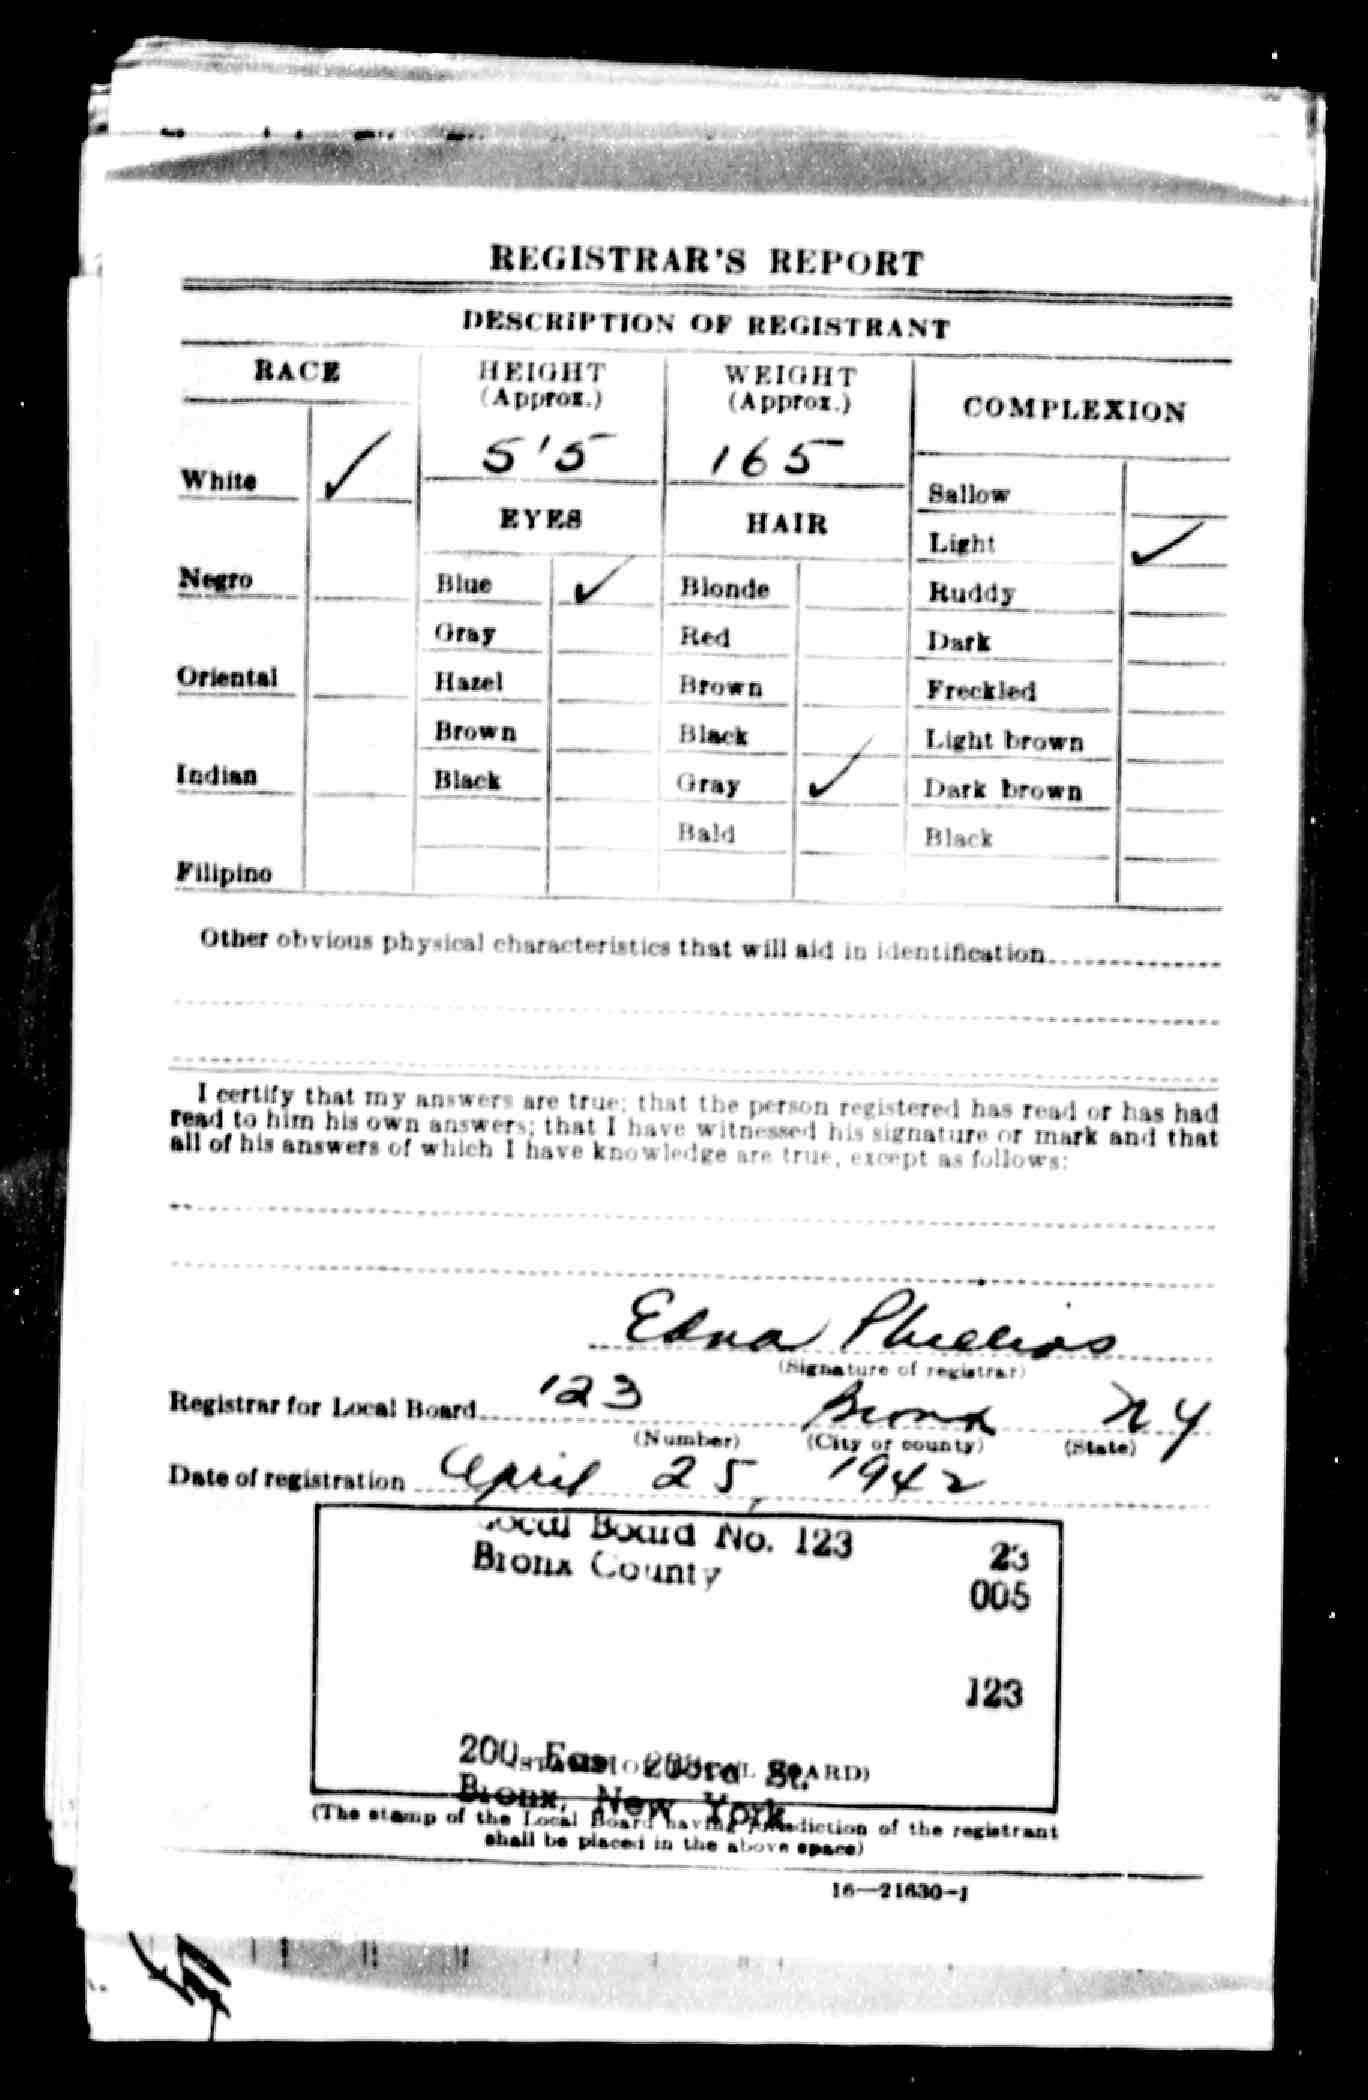 REGISTRAR'S REPORT
DESCRIPTION OF REGISTRANT
RACE
HEIGHT
(Approx.)
WEIGHT
(Approx.)
COMPLEXION
5'5
165
White ✓
EYES
HAIR
Sallow
Light ✓
Negro
Blue ✓
Blonde
Ruddy
Gray
Red
Dark
Oriental
Hazel
Brown
Freckled
Brown
Black
Light brown
Indian
Black
Gray ✓
Dark brown
Bald
Black
Filipino
Other obvious physical characteristics that will aid in identification
I certify that my answers are true; that the person registered has read or has had
read to him his own answers; that I have witnessed his signature or mark and that
all of his answers of which I have knowledge are true, except as follows:
Edna Phillips
(Signature of registrar)
Registrar for Local Board 123 Bronx NY
(Number) (City or county) (State)
Date of registration April 25, 1942
Local Board No. 123 23
Bronx County 005
123
200 East 233rd St.
Bronx, New York
(The stamp of the Local Board having jurisdiction of the registrant
shall be placed in the above space)
16—21630-1